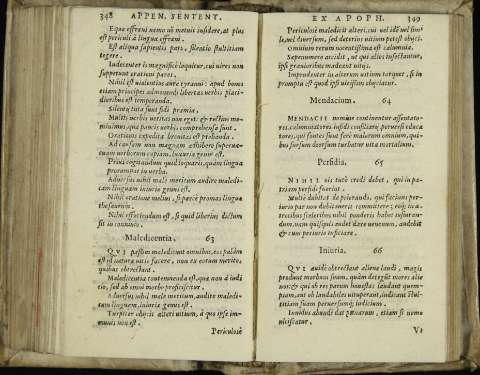 348 APPEN. SENTENT.
Equo effreni nemo nō metuit insidere, at plus
est periculi à lingua effreni.
Est aliqua sapientis pars, silentio stultitiam
tegere.
Indecenter is magnificè loquitur, cui vires non
suppetunt orationi pares.
Nihil est violentius aure tyranni: apud bonos
etiam principes admonendi libertas verbis placi-
dioribus est temperanda.
Silentij tuta sunt fidi præmia.
Multis verbis veritas non eget: & rectius me-
minimus, quæ paucis verbis comprehensa sunt.
Orationis expedita brevitas est probanda.
Ad causam non magnam adhibere supervac-
uam verborum copiam, luxuriæ genus est.
Prius cogitandum quid loquaris, quàm lingua
prorumpat in verba.
Adversus nihil malè meritum audire maledi-
cam linguam iniuriæ genus est.
Nihil oratione melius, si parcè promas linguæ
thesaurum.
Nihil effutiendum est, si quid liberius dictum
sit in conviviis.
Maledicentia. 63
QVI passim maledicunt omnibus, eos palàm
est id natura vitii facere, non ex eorum merito,
quibus obtrectant.
Maledicentia contemnenda est, quæ non à iudi-
cio, sed ab animi morbo proficiscitur.
Adversus nihil malè meritum, audire maledi-
cam linguam, iniuriæ genus est.
Turpiter obijcis alteri vitium, à quo ipse im-
munis non est.
Periculosè
EX APOPH. 349
Periculosè maledicit alteri, cui vel idē vel simi
le, vel diversum, sed deterius vitium potest obijci.
Omnium rerum nocentissima est calumnia.
Sæpenumero accidit, ut qui alios insectantur,
ipsi gravioribus madeant vitijs.
Imprudenter in alterum vitium torquet, si in
promptu est quod ipsi vicissim obijciatur.
Mendacium. 64
MENDACII nomine continentur assentato-
res, calumniatores, infidi consiliarij, perversi educa-
tores, qui fontes sunt ferè malorum omnium, qui-
bus sursum deorsum turbatur vita mortalium.
Perfidia. 65
NIHIL ijs tutò credi debet, qui in pa-
triam perfidi fuerint.
Multi dubitāt de peierando, qui faciunt per-
iurio par non dubitarint committere; eoq; in a-
trocibus sceleribus nihil ponderis habet iusiuran-
dum, nam quisquis audet dare venenum, audebit
& cum periurio inficiare.
Iniuria. 66
QVI avidè obtrectant alienæ laudi, magis
produnt morbum suum, quàm detegūt mores alie
nos: & qui ob res parum honestas laudant quem-
piam, aut ob laudabiles vituperant, indicant stul-
titiam suam perversumq; iudicium.
Invidus abundè dat pœnarum, etiam si nemo
ulciscatur.
Vt